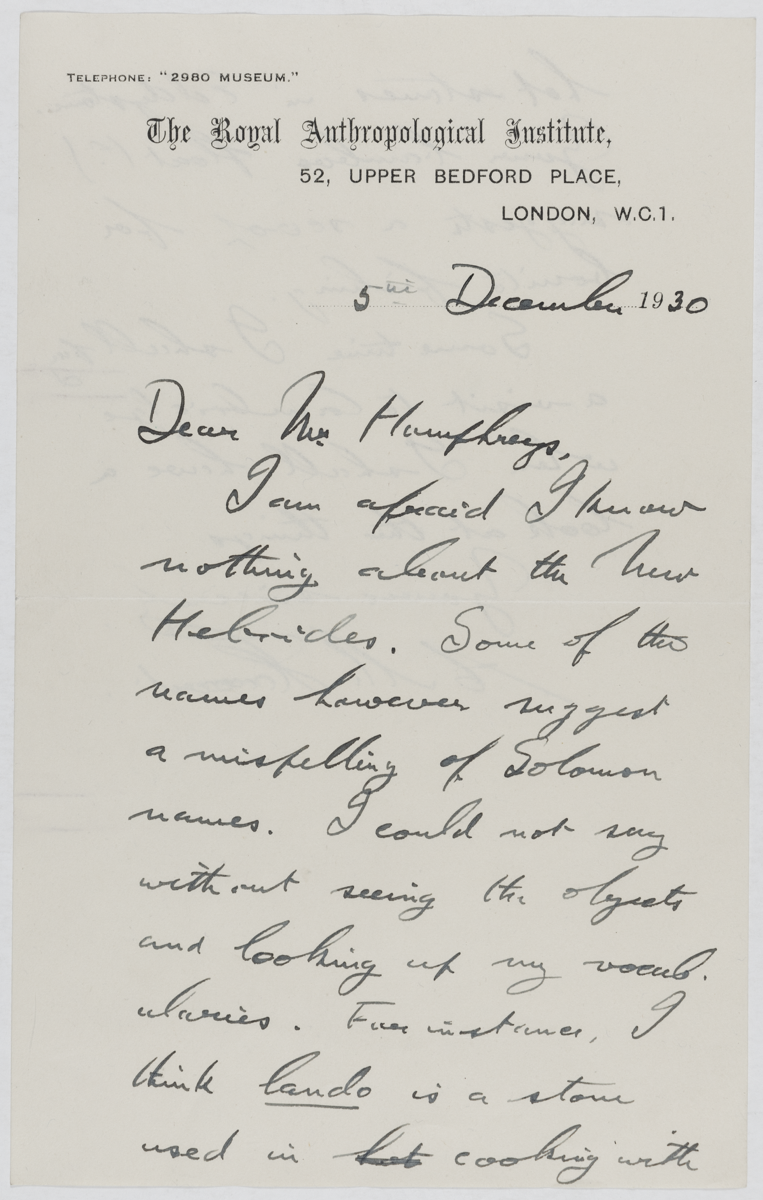 TELEPHONE: "2980 MUSEUM."
The Royal Anthropological Institute,
52, UPPER BEDFORD PLACE,
LONDON, W.C.1.
5th December 1930
Dear Mr Humphreys,
I am afraid I know
nothing about the New
Hebrides. Some of the
names however suggest
a mispelling of Solomon
names. I could not say
without seeing the objects
and looking up my vocab-
ularies. For instance, I
think lando is a stone
used in hot cooking with